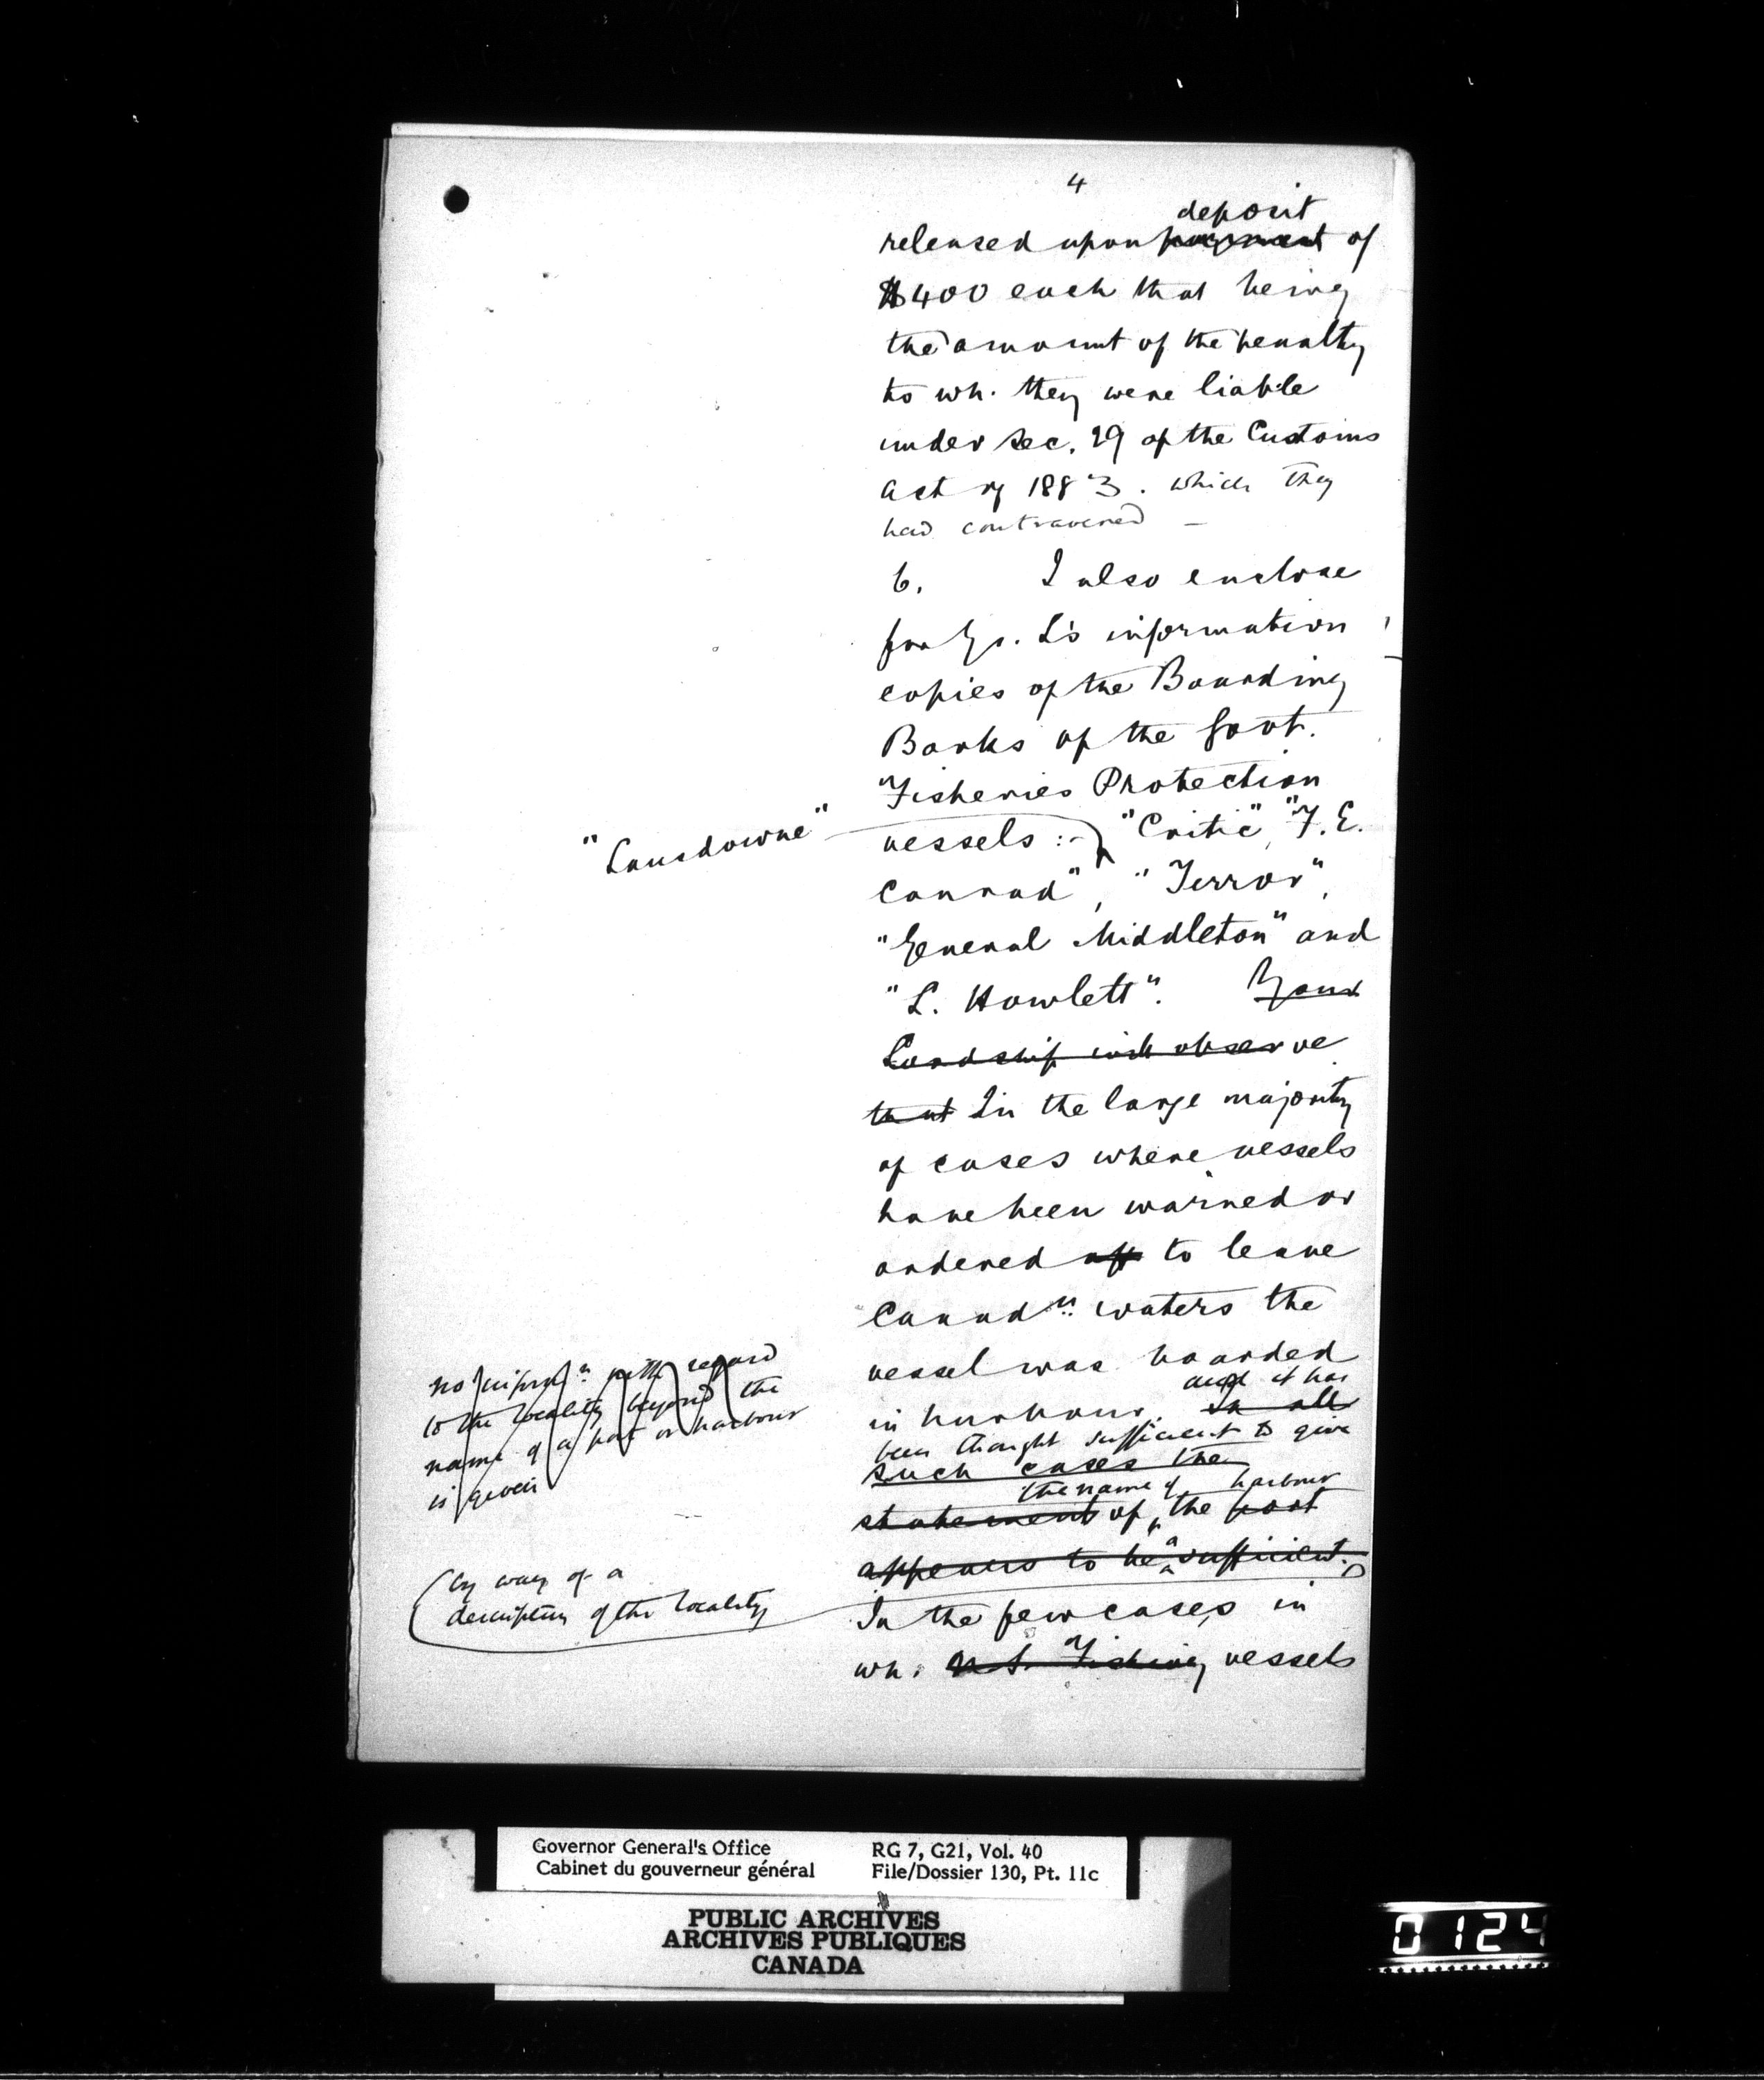 4
deposit
released upon payment of
$400 each that being
the amount of the penalty
to wh. they were liable
under sec. 29 of the Customs
Act of 1883. which they
had contravened —
6. I also enclose
for Yr. L's information
copies of the Boarding
Books of the Govt.
Fisheries Protection
"Lansdowne"
vessels :- "Critic", "F. E.
Conrad", "Terror",
"General Middleton" and
"L. Howlett". Your
Lordship will observe
that In the large majority
of cases where vessels
have been warned or
ordered off to leave
Canadn waters the
vessel was boarded
and it has
in harbour. In all
been thought sufficient to give
such cases the
the name of harbour
statement of the port
appears to be sufficient.
no inform.n with regard
to the locality beyond the
name of a port or harbour
is given
(by way of a
description of the locality
In the few cases in
wh. U.S. Fishing vessels
Governor General's Office
Cabinet du gouverneur général
RG 7, G21, Vol. 40
File/Dossier 130, Pt. 11c
PUBLIC ARCHIVES
ARCHIVES PUBLIQUES
CANADA
0124